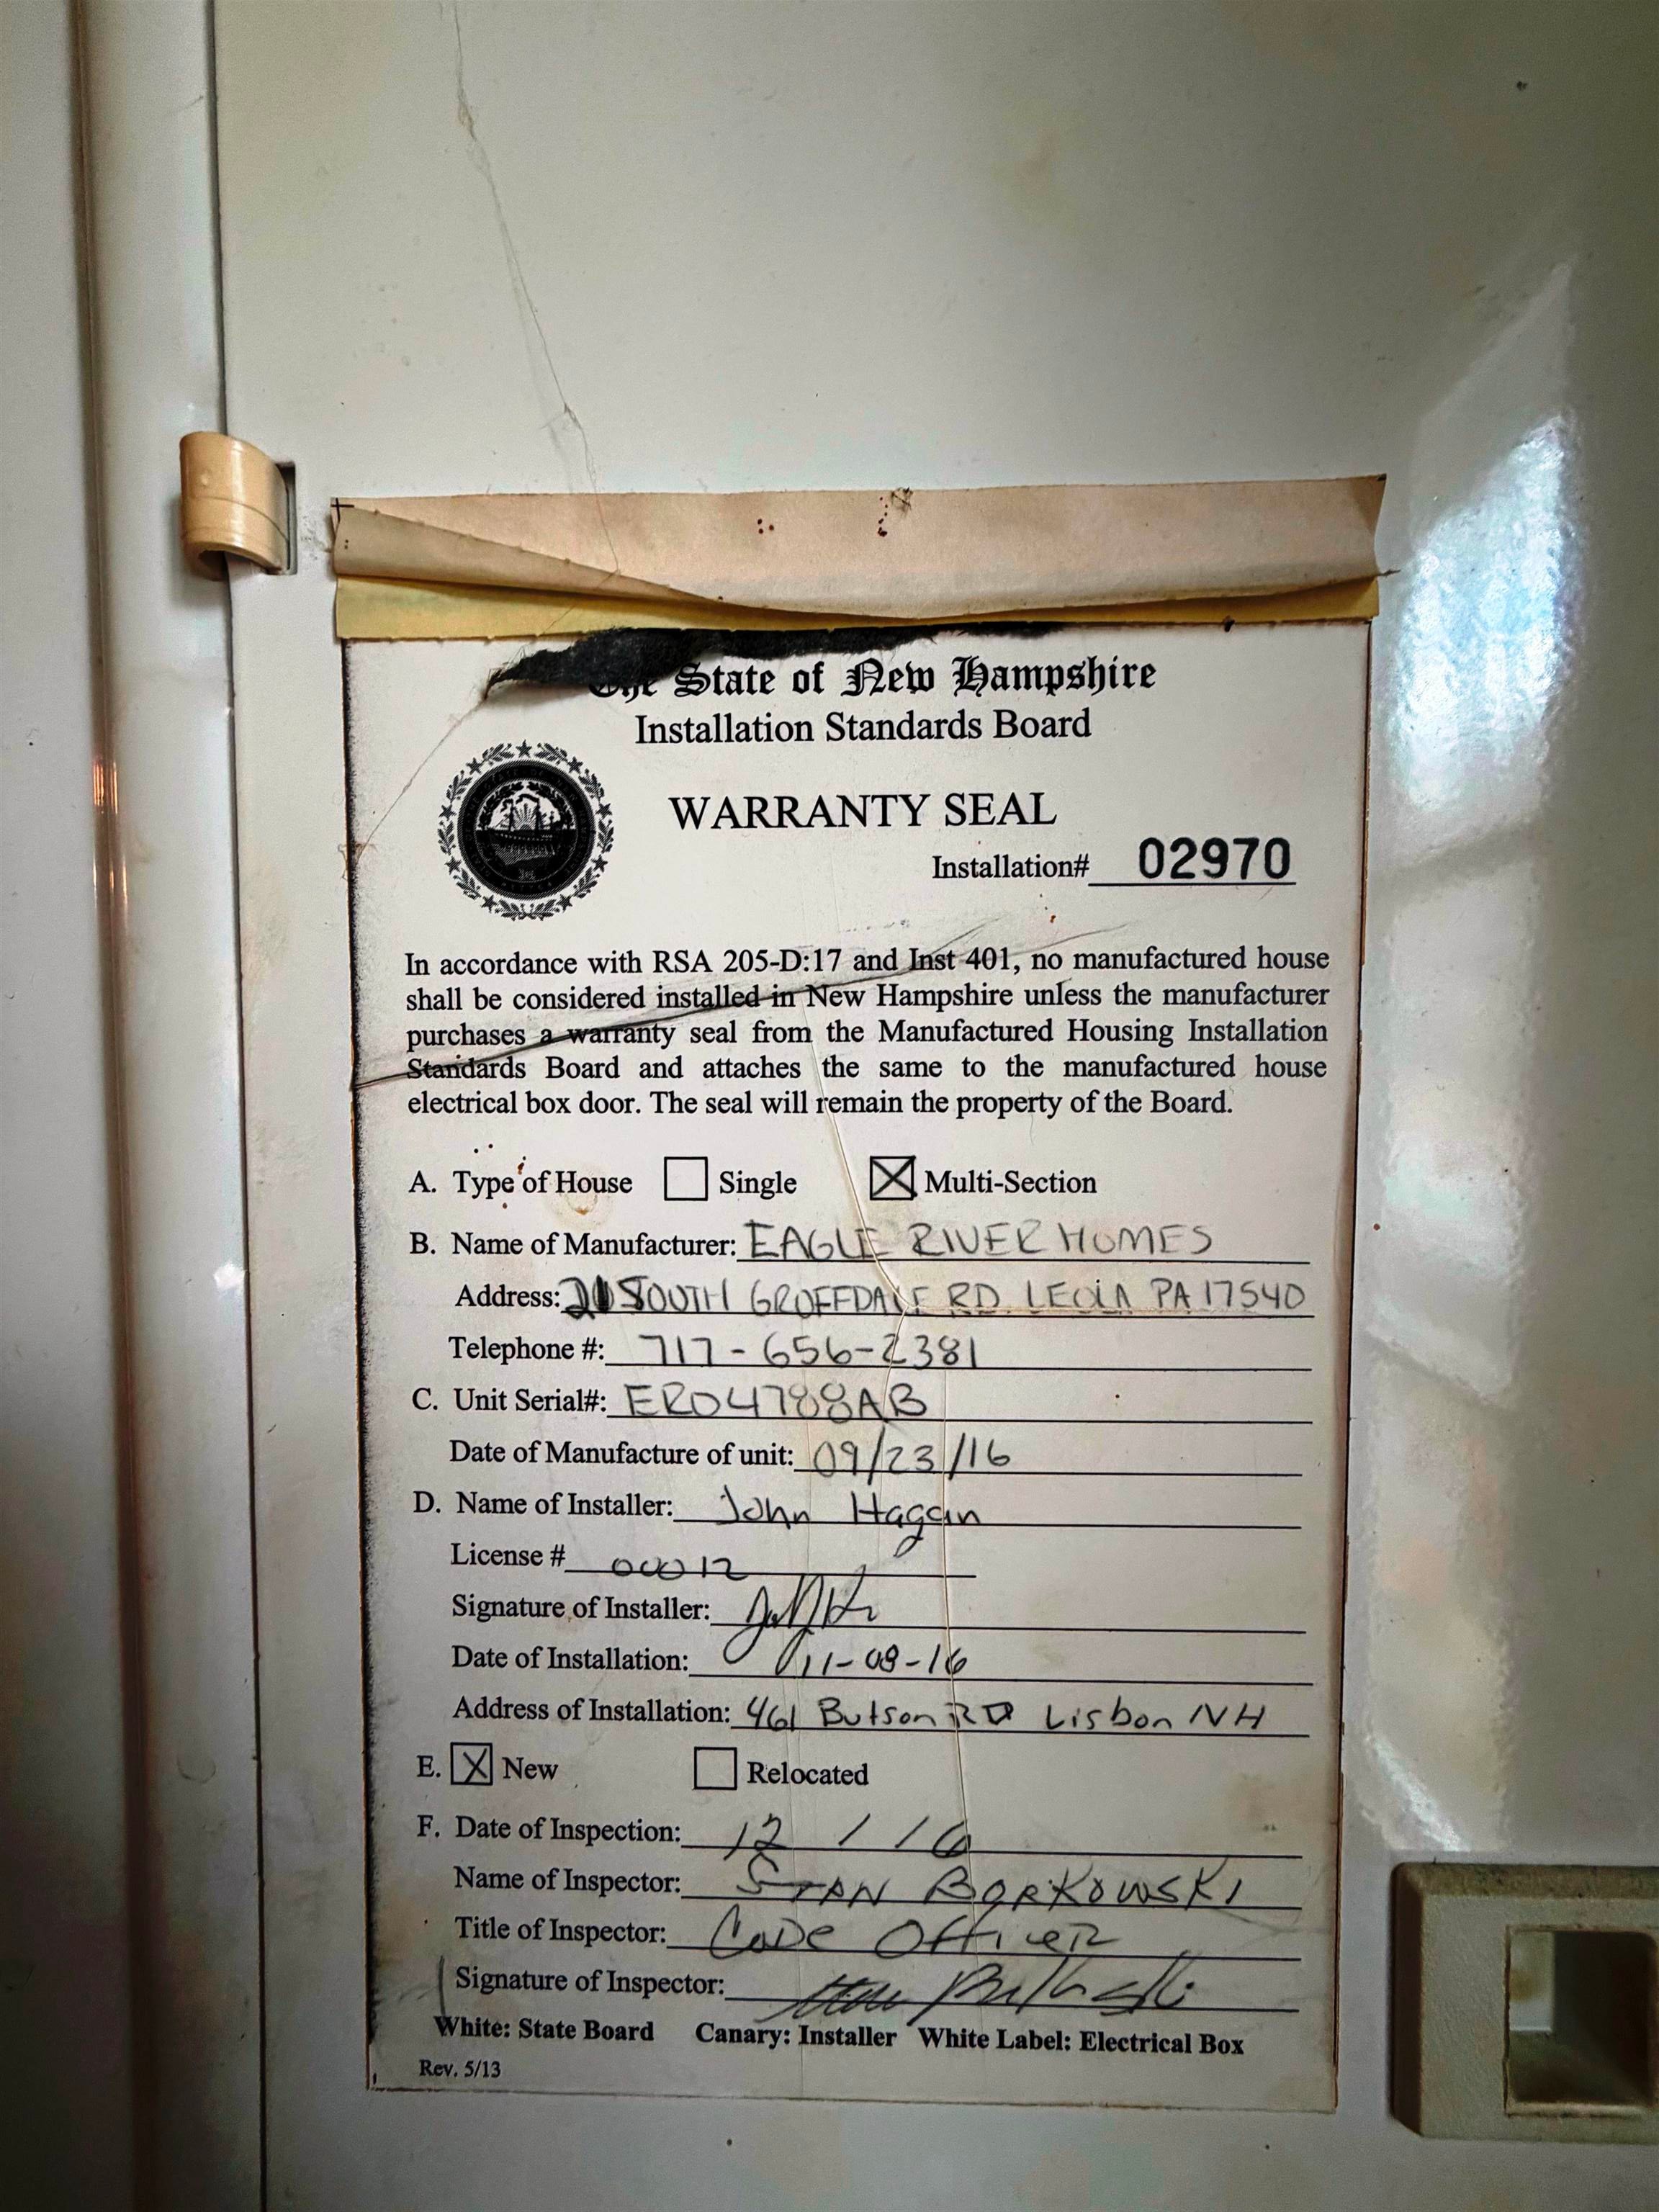 The State of New Hampshire
Installation Standards Board
WARRANTY SEAL
Installation# 02970
In accordance with RSA 205-D:17 and Inst 401, no manufactured house
shall be considered installed in New Hampshire unless the manufacturer
purchases a warranty seal from the Manufactured Housing Installation
Standards Board and attaches the same to the manufactured house
electrical box door. The seal will remain the property of the Board.
A. Type of House Single Multi-Section
B. Name of Manufacturer: EAGLE RIVER HOMES
Address: 21 SOUTH GROFFDALE RD. LEOLA PA 17540
Telephone #: 717-656-2381
C. Unit Serial#: ER04788AB
Date of Manufacture of unit: 09/23/16
D. Name of Installer: John Hagan
License # 00012
Signature of Installer:
Date of Installation: 11-08-16
Address of Installation: 461 Butson RD Lisbon NH
E. X New Relocated
F. Date of Inspection: 12 / 16
Name of Inspector: STAN BORKOWSKI
Title of Inspector: CODE OFFICER
Signature of Inspector:
White: State Board Canary: Installer White Label: Electrical Box
Rev. 5/13